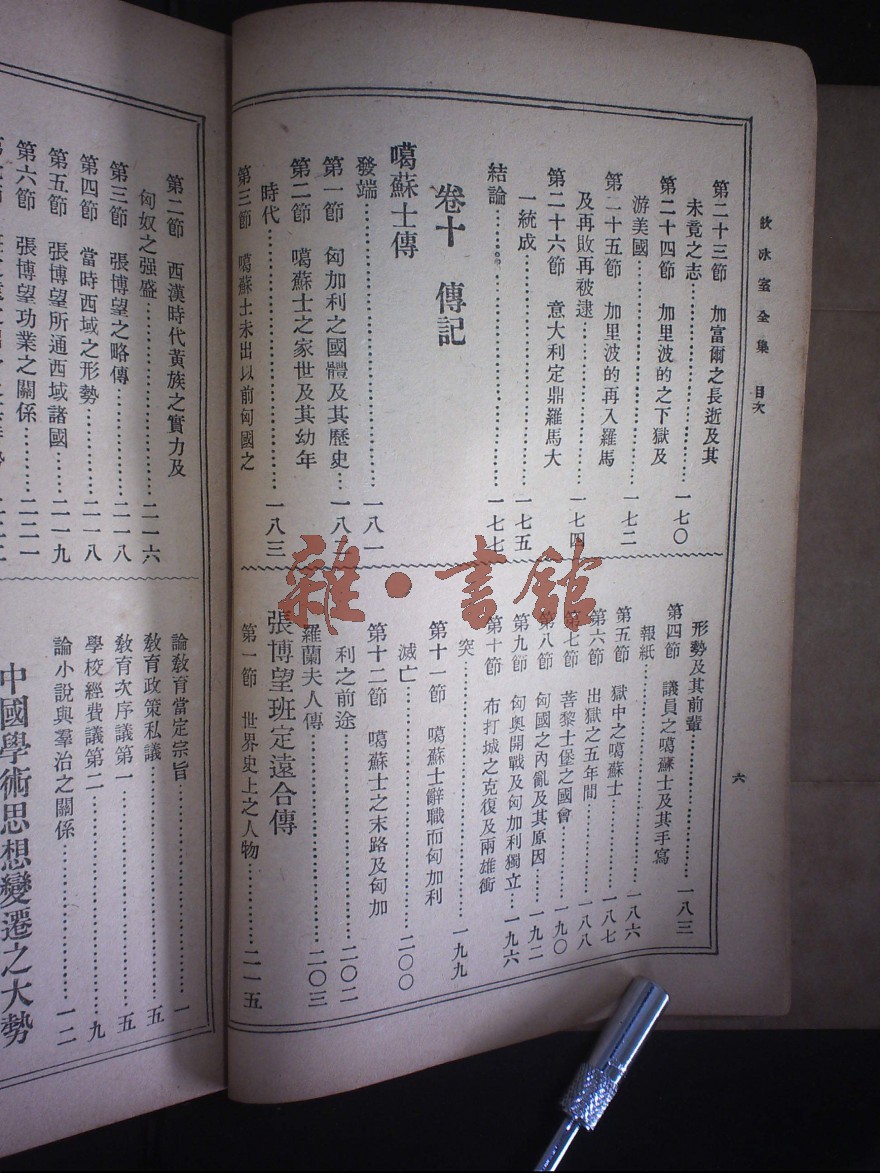 飲冰室全集 目次
六
第二十三節 加富爾之長逝及其
未竟之志……一七〇
第二十四節 加里波的之下獄及
游美國……一七二
第二十五節 加里波的再入羅馬
及再敗再被逮……一七四
第二十六節 意大利定鼎羅馬大
一統成……一七五
結論……一七七
卷十 傳記
噶蘇士傳
發端……一八一
第一節 匈加利之國體及其歷史…一八二
第二節 噶蘇士之家世及其幼年
時代……一八三
第三節 噶蘇士未出以前匈國之
形勢及其前輩……一八三
第四節 議員之噶蘇士及其手寫
報紙……一八六
第五節 獄中之噶蘇士……一八七
第六節 出獄之五年間……一八八
第七節 菩黎士堡之國會……一九〇
第八節 匈國之內亂及其原因……一九二
第九節 匈奧開戰及匈加利獨立…一九六
第十節 布打城之克復及兩雄衝
突……一九九
第十一節 噶蘇士辭職而匈加利
滅亡……二〇〇
第十二節 噶蘇士之末路及匈加
利之前途……二〇二
羅蘭夫人傳……二〇三
張博望班定遠合傳
第一節 世界史上之人物……二一五
第二節 西漢時代黃族之實力及
匈奴之强盛……二一六
第三節 張博望之略傳……二一八
第四節 當時西域之形勢……二一八
第五節 張博望所通西域諸國……二一九
第六節 張博望功業之關係……二二一
論敎育當定宗旨……一
敎育政策私議……五
敎育次序議第一……五
學校經費議第二……九
論小說與羣治之關係……一二
中國學術思想變遷之大勢
雜·書館